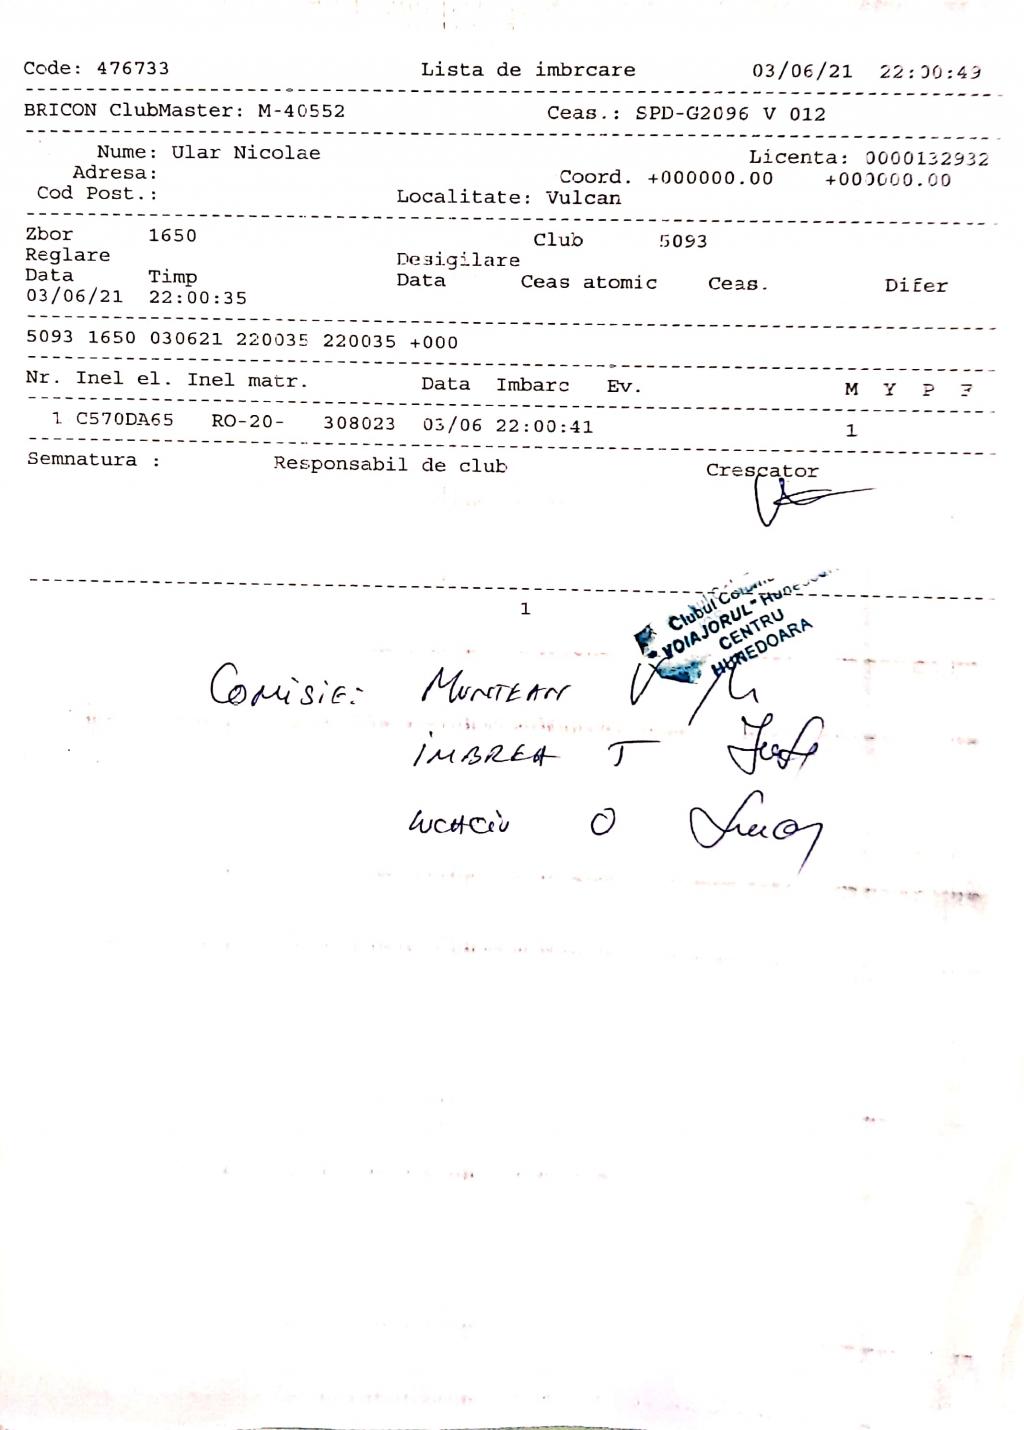 Code: 476733 Lista de imbrcare 03/06/21 22:00:49
BRICON ClubMaster: M-40552 Ceas.: SPD-G2096 V 012
Nume: Ular Nicolae Licenta: 0000132932
Adresa: Coord. +000000.00 +000000.00
Cod Post.: Localitate: Vulcan
Zbor 1650 Club 5093
Reglare Desigilare
Data Timp Data Ceas atomic Ceas. Difer
03/06/21 22:00:35
5093 1650 030621 220035 220035 +000
Nr. Inel el. Inel matr. Data Imbarc Ev. M Y P F
1 C570DA65 RO-20- 308023 03/06 22:00:41 1
Semnatura : Responsabil de club Crescator
1
Clubul
"VOIAJORUL"
CENTRU
HUNEDOARA
COMISIE: MUNTEAN V
IMBREA T
LUCACIU O